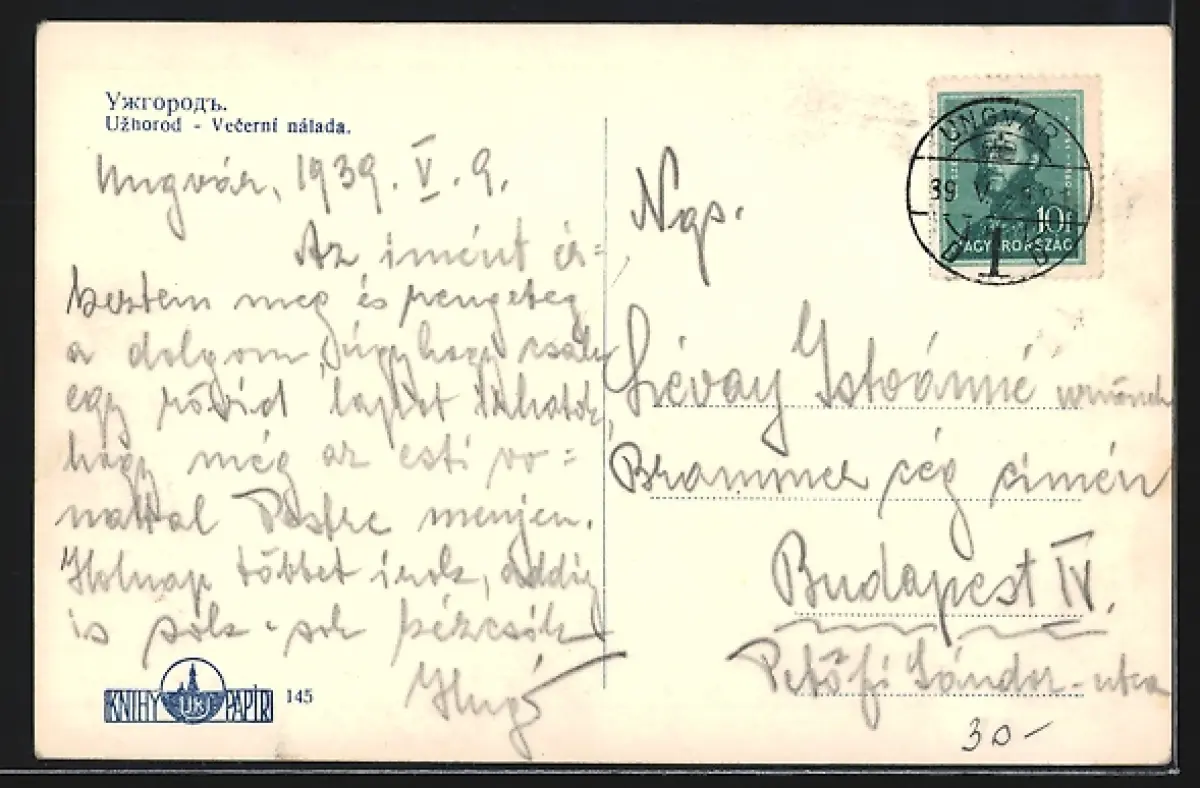 Ужгородъ.
Užhorod - Večerní nálada.
Ungvár, 1939. V. 9.
Az imént ér=
keztem meg és rengeteg
a dolgom, úgyhogy csak
egy rövid lapot írhatok,
hogy még az esti vo=
nattal Pestre menjen.
Holnap többet írok, addig
is sok-sok kézcsók
Hugó
KNIHY UKI PAPÍR 145
UNGVÁR
39 V.
10f
MAGYARORSZÁG
Ngs.
Lévay Istvánné úrnőnek
Brammer cég címén
Budapest IV.
Petőfi Sándor-utca
30-